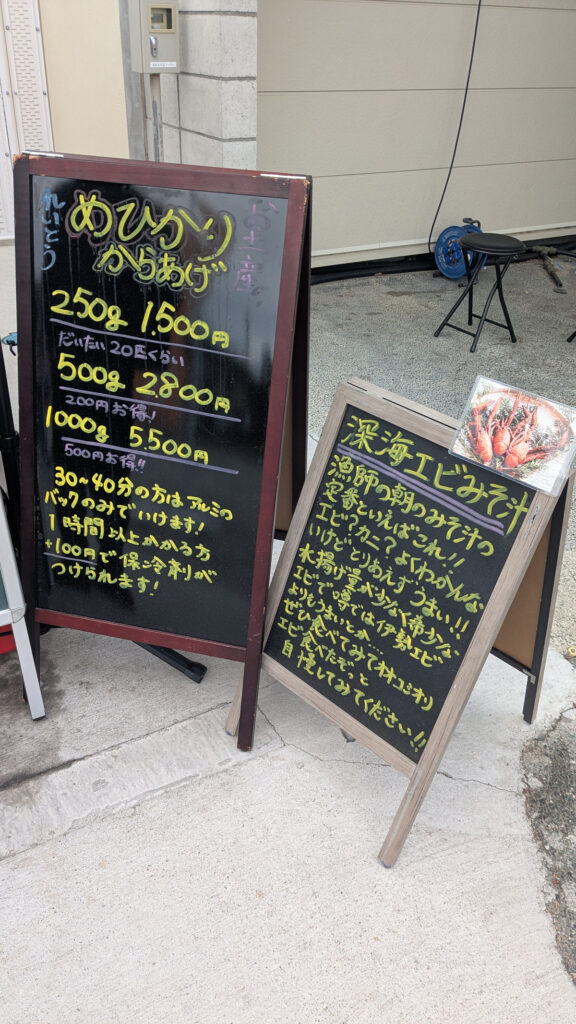 れいとう
お土産
めひかり
からあげ
250g 1,500円
だいたい20匹くらい
500g 2,800円
200円お得!
1000g 5,500円
500円お得!!
30~40分の方はアルミの
バックのみでいけます!
1時間以上かかる方
+100円で保冷剤が
つけられます!
深海エビみそ汁
漁師の朝のみそ汁の
定番といえばこれ!!
エビ?カニ?よくわかんな
いけどとりあえずうまい!!
水揚げ量が少なく希少な
エビで噂では伊勢エビ
よりもうまいとか…
ぜひ食べてみてオオコシオリ
エビ食べたぞっと
自慢してみてください!!